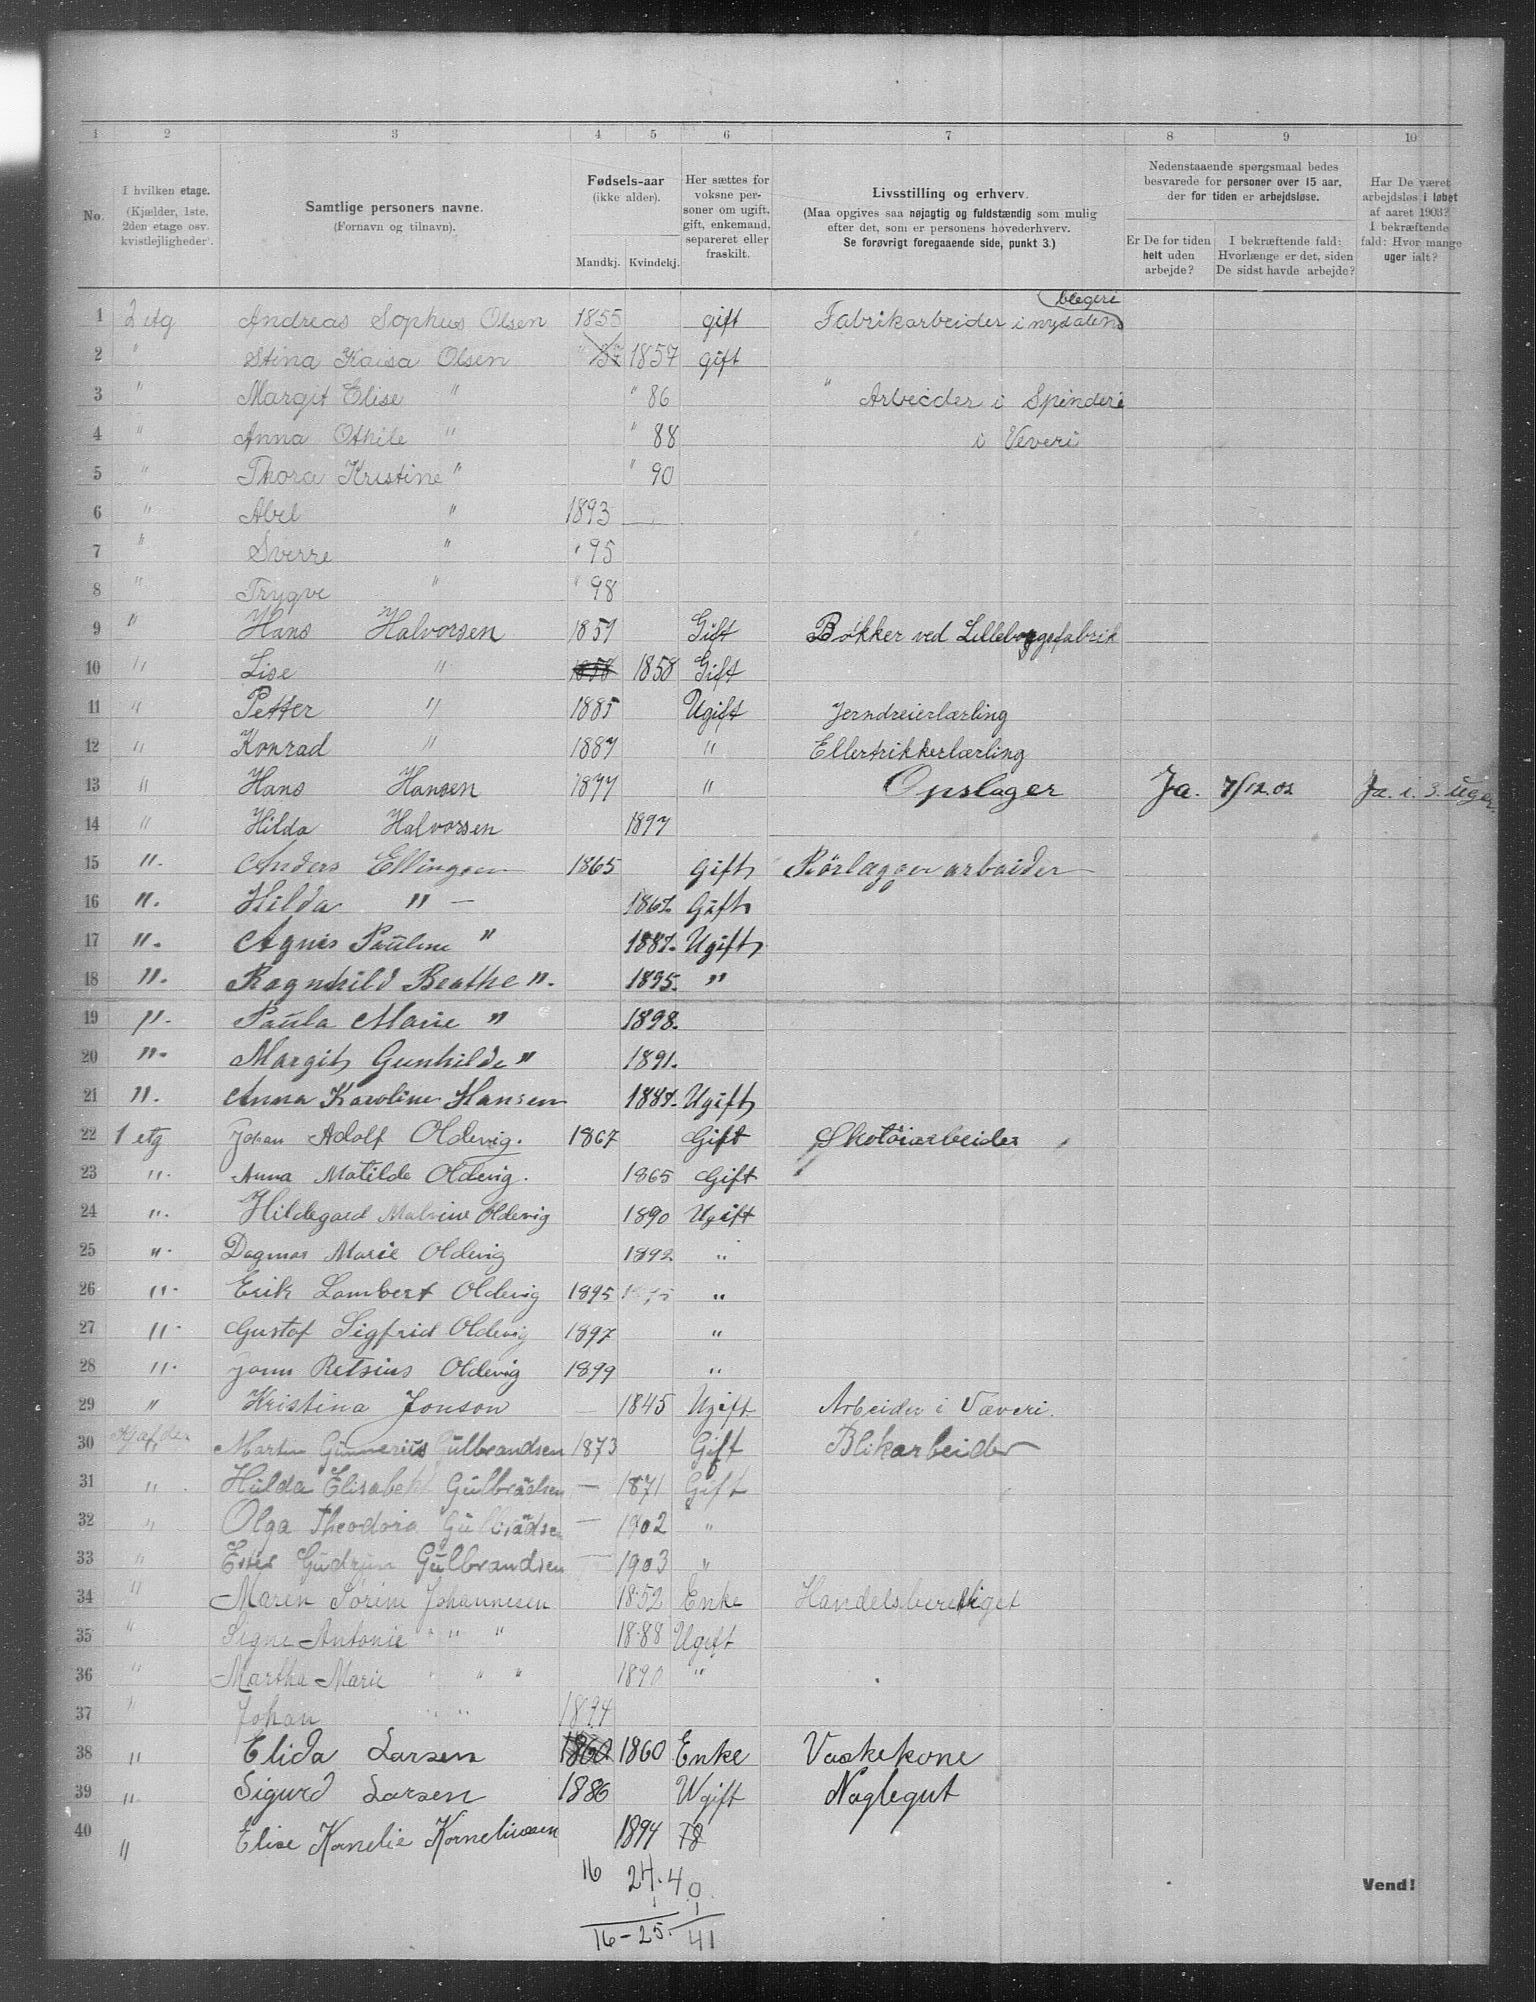 1 2 3 4 5 6 7 8 9 10
No.
I hvilken etage.
(Kjælder, 1ste, 2den etage osv. kvistlejligheder).
Samtlige personers navne.
(Fornavn og tilnavn).
Fødsels-aar
(ikke alder).
Mandkj. Kvindekj.
Her sættes for voksne personer om ugift, gift, enkemand, separeret eller fraskilt.
Livsstilling og erhverv.
(Maa opgives saa nøjagtig og fuldstændig som mulig efter det, som er personens hovederhverv.
Se forøvrigt foregaaende side, punkt 3.)
Nedenstaaende spørgsmaal bedes besvarede for personer over 15 aar, der for tiden er arbejdsløse.
Er De for tiden helt uden arbejde?
I bekræftende fald: Hvorlænge er det, siden De sidst havde arbejde?
Har De været arbejdsløs i løbet af aaret 1903? I bekræftende fald: Hvor mange uger ialt?
blegeri
1 2 etg Andreas Sophus Olsen 1855 gift Fabrikarbeider i nydalens
2 " Stina Kaisa Olsen 1857 gift
3 " Margit Elise " " 86 " Arbeider i Spinderi
4 " Anna Othile " " 88 i Veveri
5 " Thora Kristine " " 90
6 " Abel " 1893
7 " Sverre " " 95
8 " Trygve " " 98
9 " Hans Halvorsen 1857 Gift Bøkker ved Lilleborgsfabrik
10 " Lise " 1858 1858 Gift
11 " Petter " 1885 Ugift Jerndreierlærling
12 " Konrad " 1887 " Ellertrikkerlærling
13 " Hans Hansen 1877 " Opslager Ja. 7/12.02 Ja. i. 3. uger
14 " Hilda Halvorsen 1897
15 ". Anders Ellingsen 1865 Gift Rörlægger arbeider
16 ". Hilda " — 1867. Gift
17 ". Agnes Pauline " 1887. Ugift
18 ". Ragnhild Beathe ". 1895. "
19 ". Paula Marie " 1898.
20 ". Margit Gunhilde " 1891.
21 ". Anna Karoline Hansen 1887. Ugift
22 1 etg Johan Adolf Oldevig. 1867 Gift Skotöiarbeider
23 ". Anna Matilde Oldevig. 1865 Gift
24 ". Hildegard Malvine Oldevig 1890 Ugift
25 ". Dagmar Marie Oldevig 1892. "
26 ". Erik Lambert Oldevig 1895 1895 "
27 ". Gustof Sigfrid Oldevig 1897 "
28 ". Retsius Oldevig 1899 "
29 " Kristina Jonson — 1845 Ugift Arbeider i Væveri.
30 Kjælder Martin Gunnerius Gulbrandsen 1873 Gift Blikarbeider
31 " Hulda Elisabeht Gulbradsen — 1871 Gift
32 " Olga Theodora Gulbradsen — 1902 "
33 " Ester Gudrun Gulbrandsen — 1903 "
34 " Maren Sörine Johannesen 1852 Enke Handelsberettiget
35 " Signe Antonie " " " 1888 Ugift
36 " Martha Marie " " " 1890 "
37 " Johan " " 1894
38 " Elida Larsen 1860 1860 Enke Vaskekone
39 " Sigurd Larsen 1886 Ugift Naglegut
40 " Elise Kornelie Korneliussen 1894
16 24. 40.
1 1
16-25. 41
Vend!